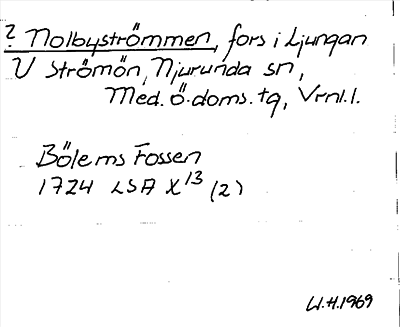 ? Nolbyströmmen, fors i Ljungan
V Strömön, Njurunda sn,
Med. ö. doms. tg, Vrnl. l.
Bölems Fossen
1724 LSA X13 (2)
W.H. 1969